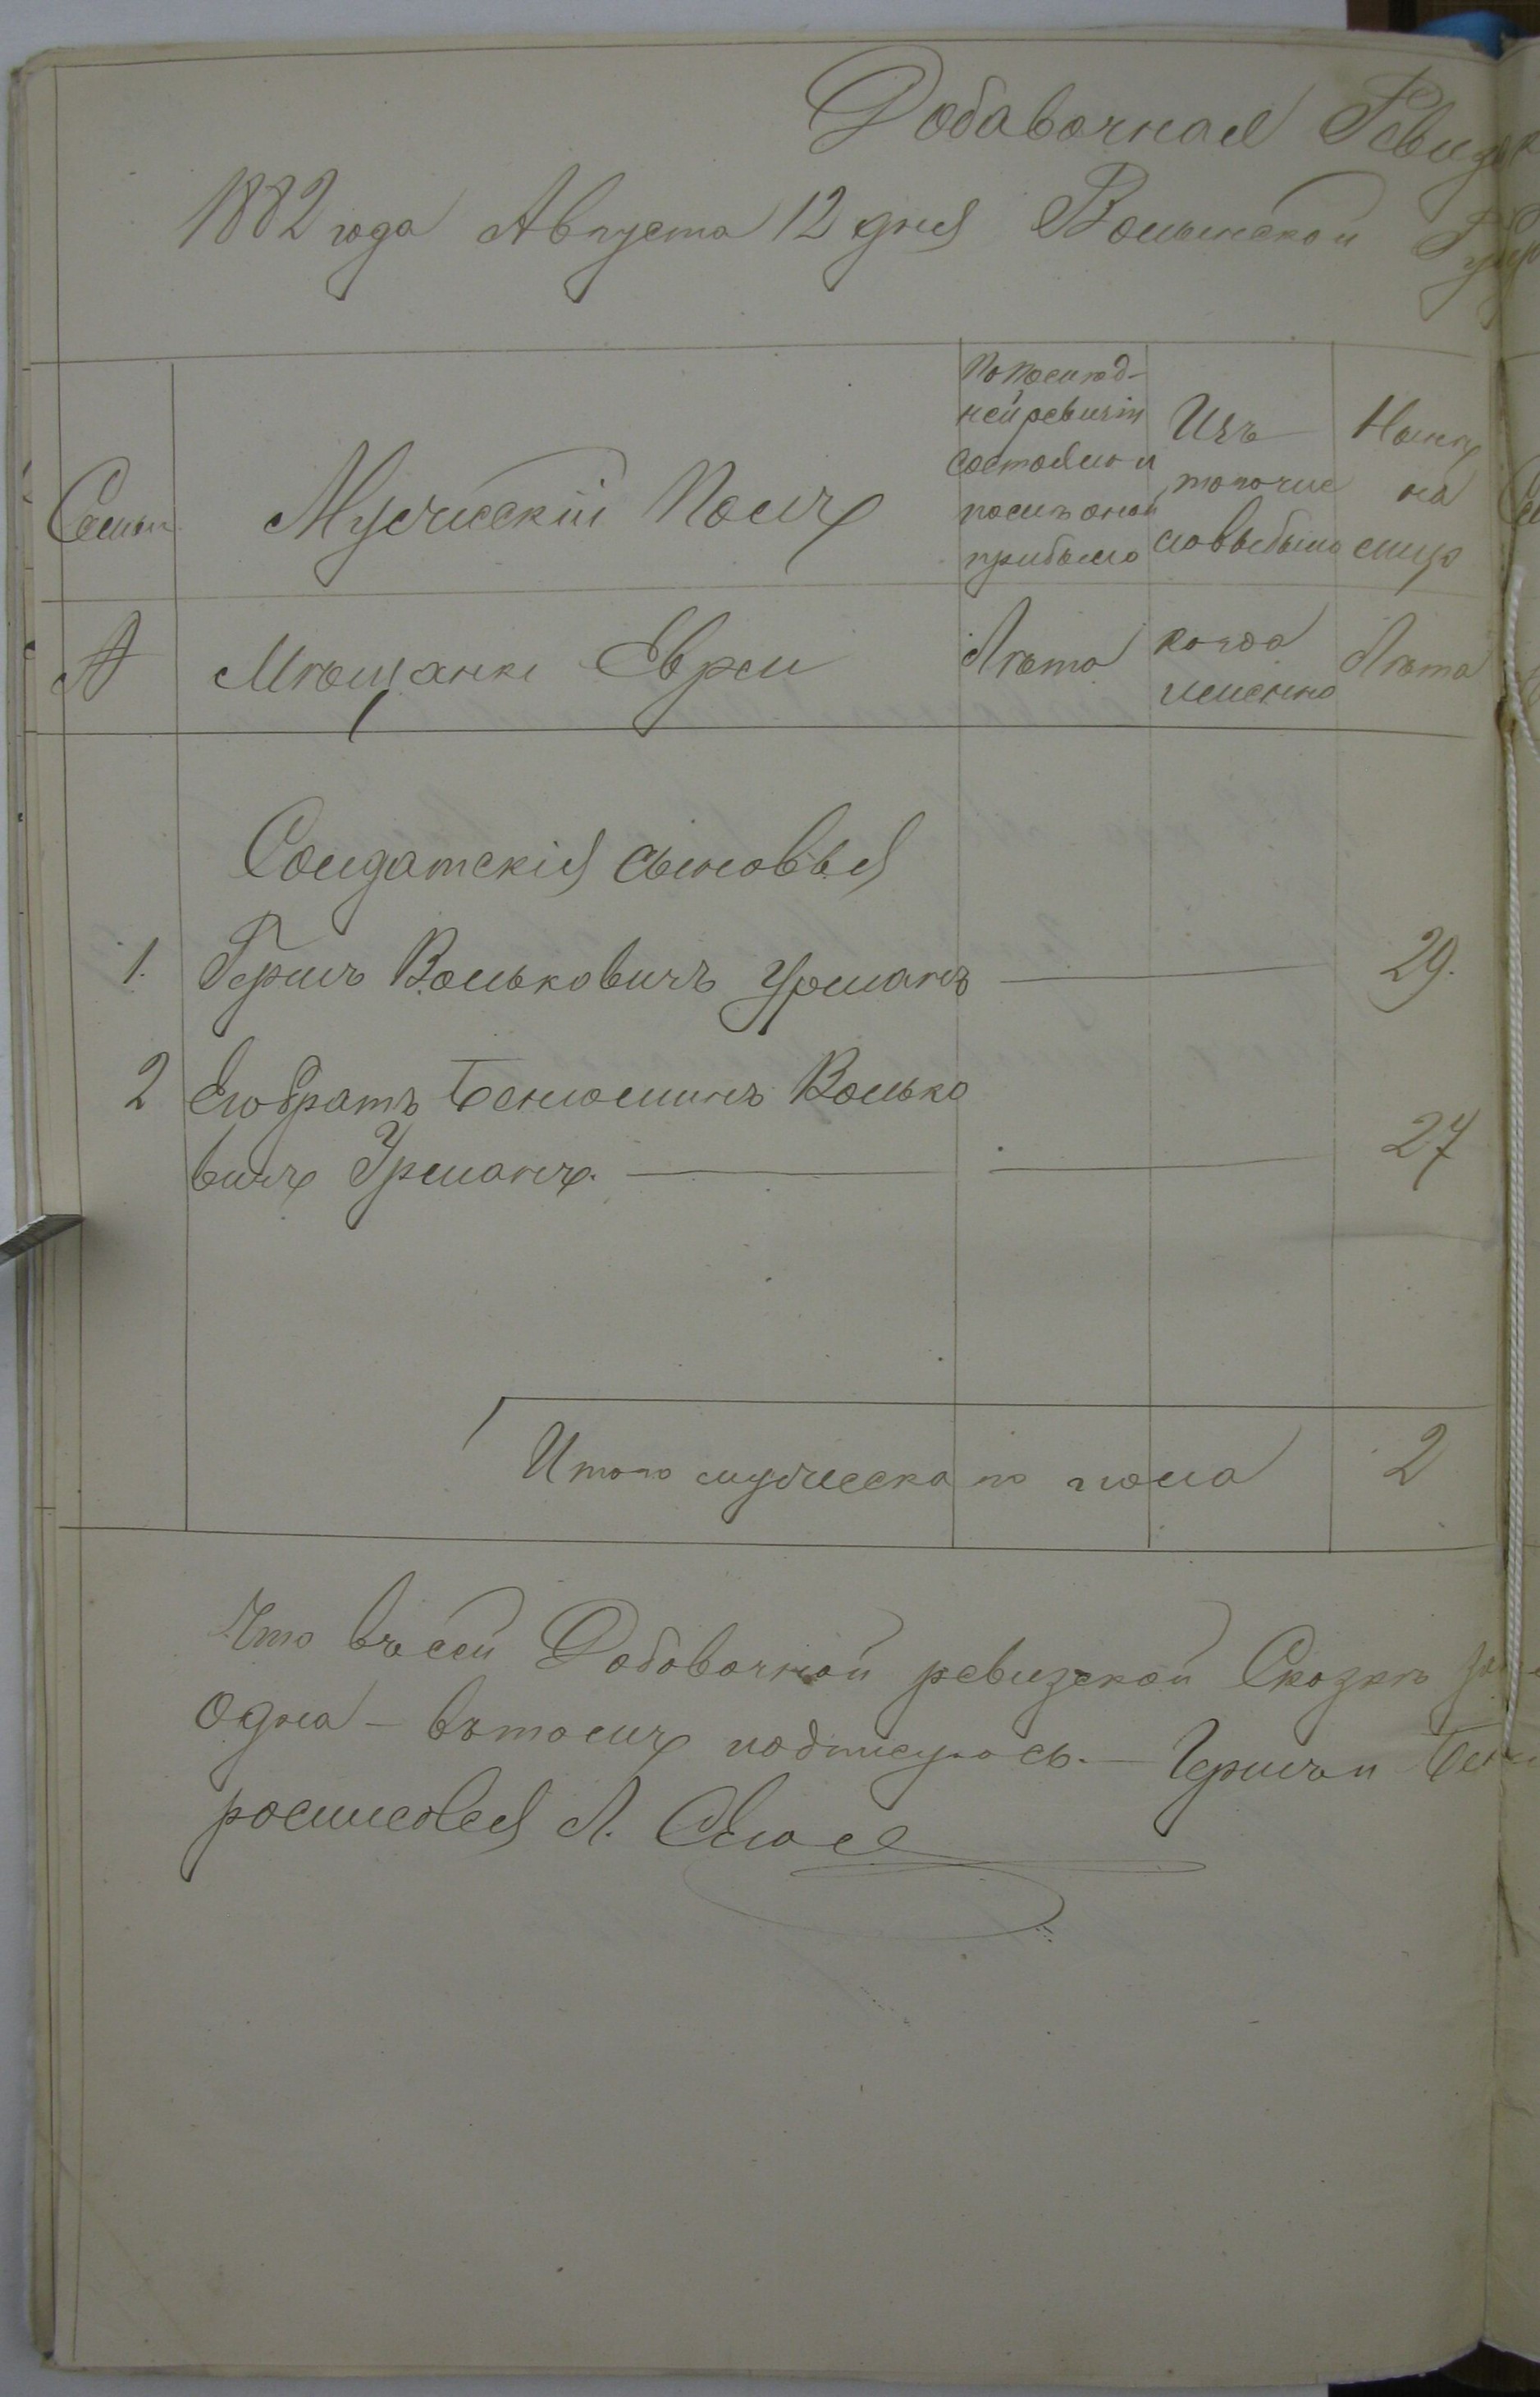 Добавочная Ревизс
1882 года Августа 12 дня Волынской Губ
Семьи
Мужескiй Полъ
По послѣд-
ней ревизiи
состояло и
послѣ оной
прибыло
Изъ
того чис
ла выбыло
Нынѣ
на
лицо
№
Мѣщане Евреи
Лѣта
когда
именно
Лѣта
Солдатскiя сыновья
1. Гершъ Вольковичъ Урманъ 29.
2 Его братъ Бенюминъ Волько
вичъ Урманъ. 27
Итого мужеска го пола 2
Что въ сей Добовочной ревизской Сказкѣ
одна - въ томъ подписуюсь. - Гершъ и
росписовся Л.